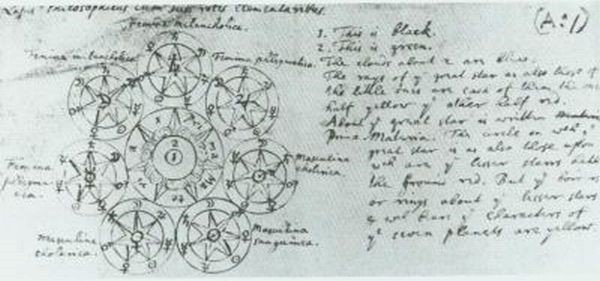 Lapis Philosophicus cum suis rotis elementaribus.
Femina melancholica.
Femina melancholica
Femina phlegmatica
Femina
phlegma
tica.
Masculina
cholerica.
Masculina
cholerica.
Masculina
sanguinea.
(A:1)
1. This is black.
2. This is green.
The clouds about 2 are blue.
The rays of yᵉ great star as also those of
the little ones are each of them the one
half yellow yᵉ other half red.
About yᵉ great star is written
Prima Materia. The circle on wch yᵉ
great star is as also those upon
wch are yᵉ lesser stars
the ground red. But yᵉ
or rings about yᵉ lesser stars
wch bear yᵉ characters of
yᵉ seven planets are yellow.